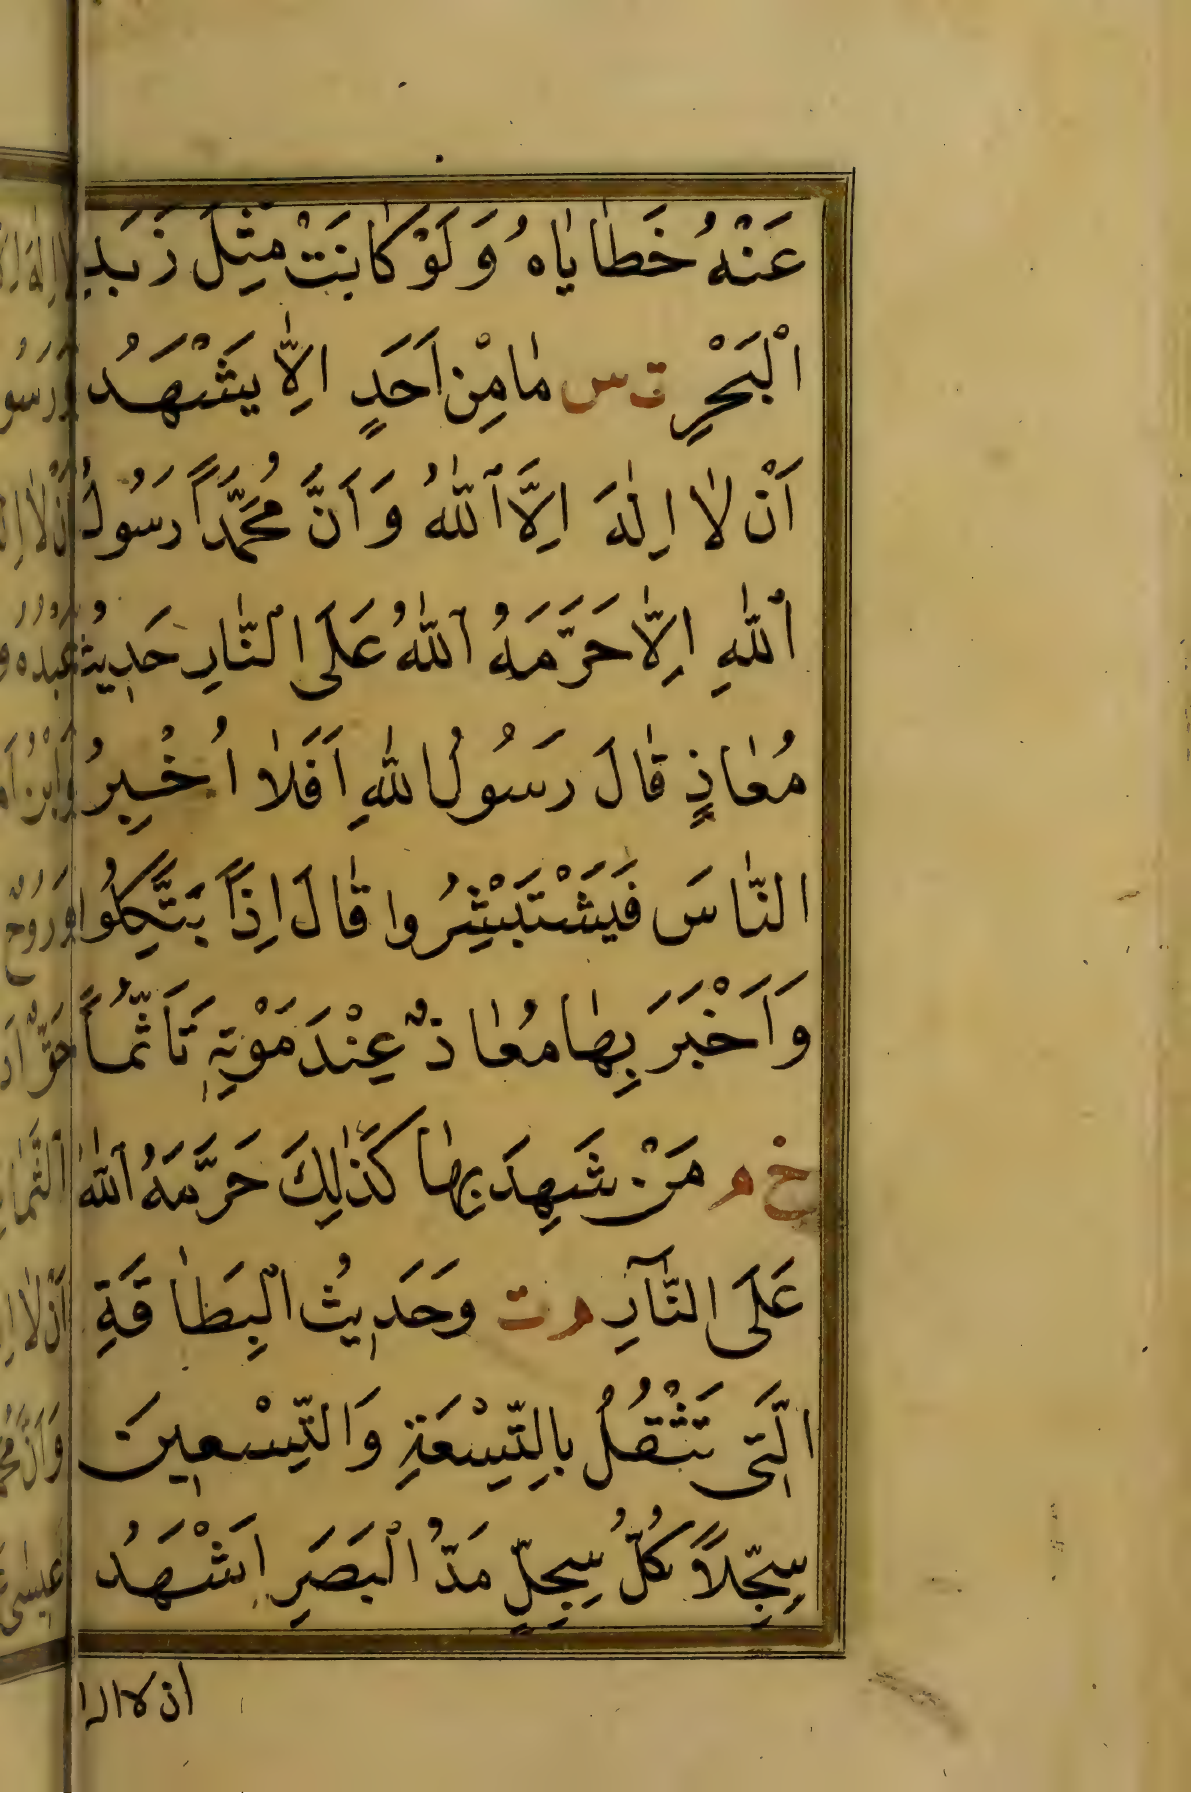 عَنْهُ خَطَايَاهُ وَلَوْ كَانَتْ مِثْلَ زَبَدِ
الْبَحْرِ ت س مَا مِنْ اَحَدٍ اِلَّا يَشْهَدُ
اَنْ لَا اِلٰهَ اِلَّا اللّٰهُ وَاَنَّ مُحَمَّدًا رَسُولُ
اللّٰهِ اِلَّا حَرَّمَهُ اللّٰهُ عَلَى النَّارِ حَدِيثُ
مُعَاذٍ قَالَ رَسُولُ اللّٰهِ اَفَلَا اُخْبِرُ
النَّاسَ فَيَسْتَبْشِرُوا قَالَ اِذًا يَتَّكِلُوا
وَاَخْبَرَ بِهَا مُعَاذٌ عِنْدَ مَوْتِهِ تَاَثُّمًا
خ م مَنْ شَهِدَ بِهَا كَذٰلِكَ حَرَّمَهُ اللّٰهُ
عَلَى النَّارِ م ت وَحَدِيثُ الْبِطَاقَةِ
الَّتِى تَثْقُلُ بِالتِّسْعَةِ وَالتِّسْعِينَ
سِجِّلًا كُلُّ سِجِلٍّ مَدُّ الْبَصَرِ اَشْهَدُ
ان لا اله ا